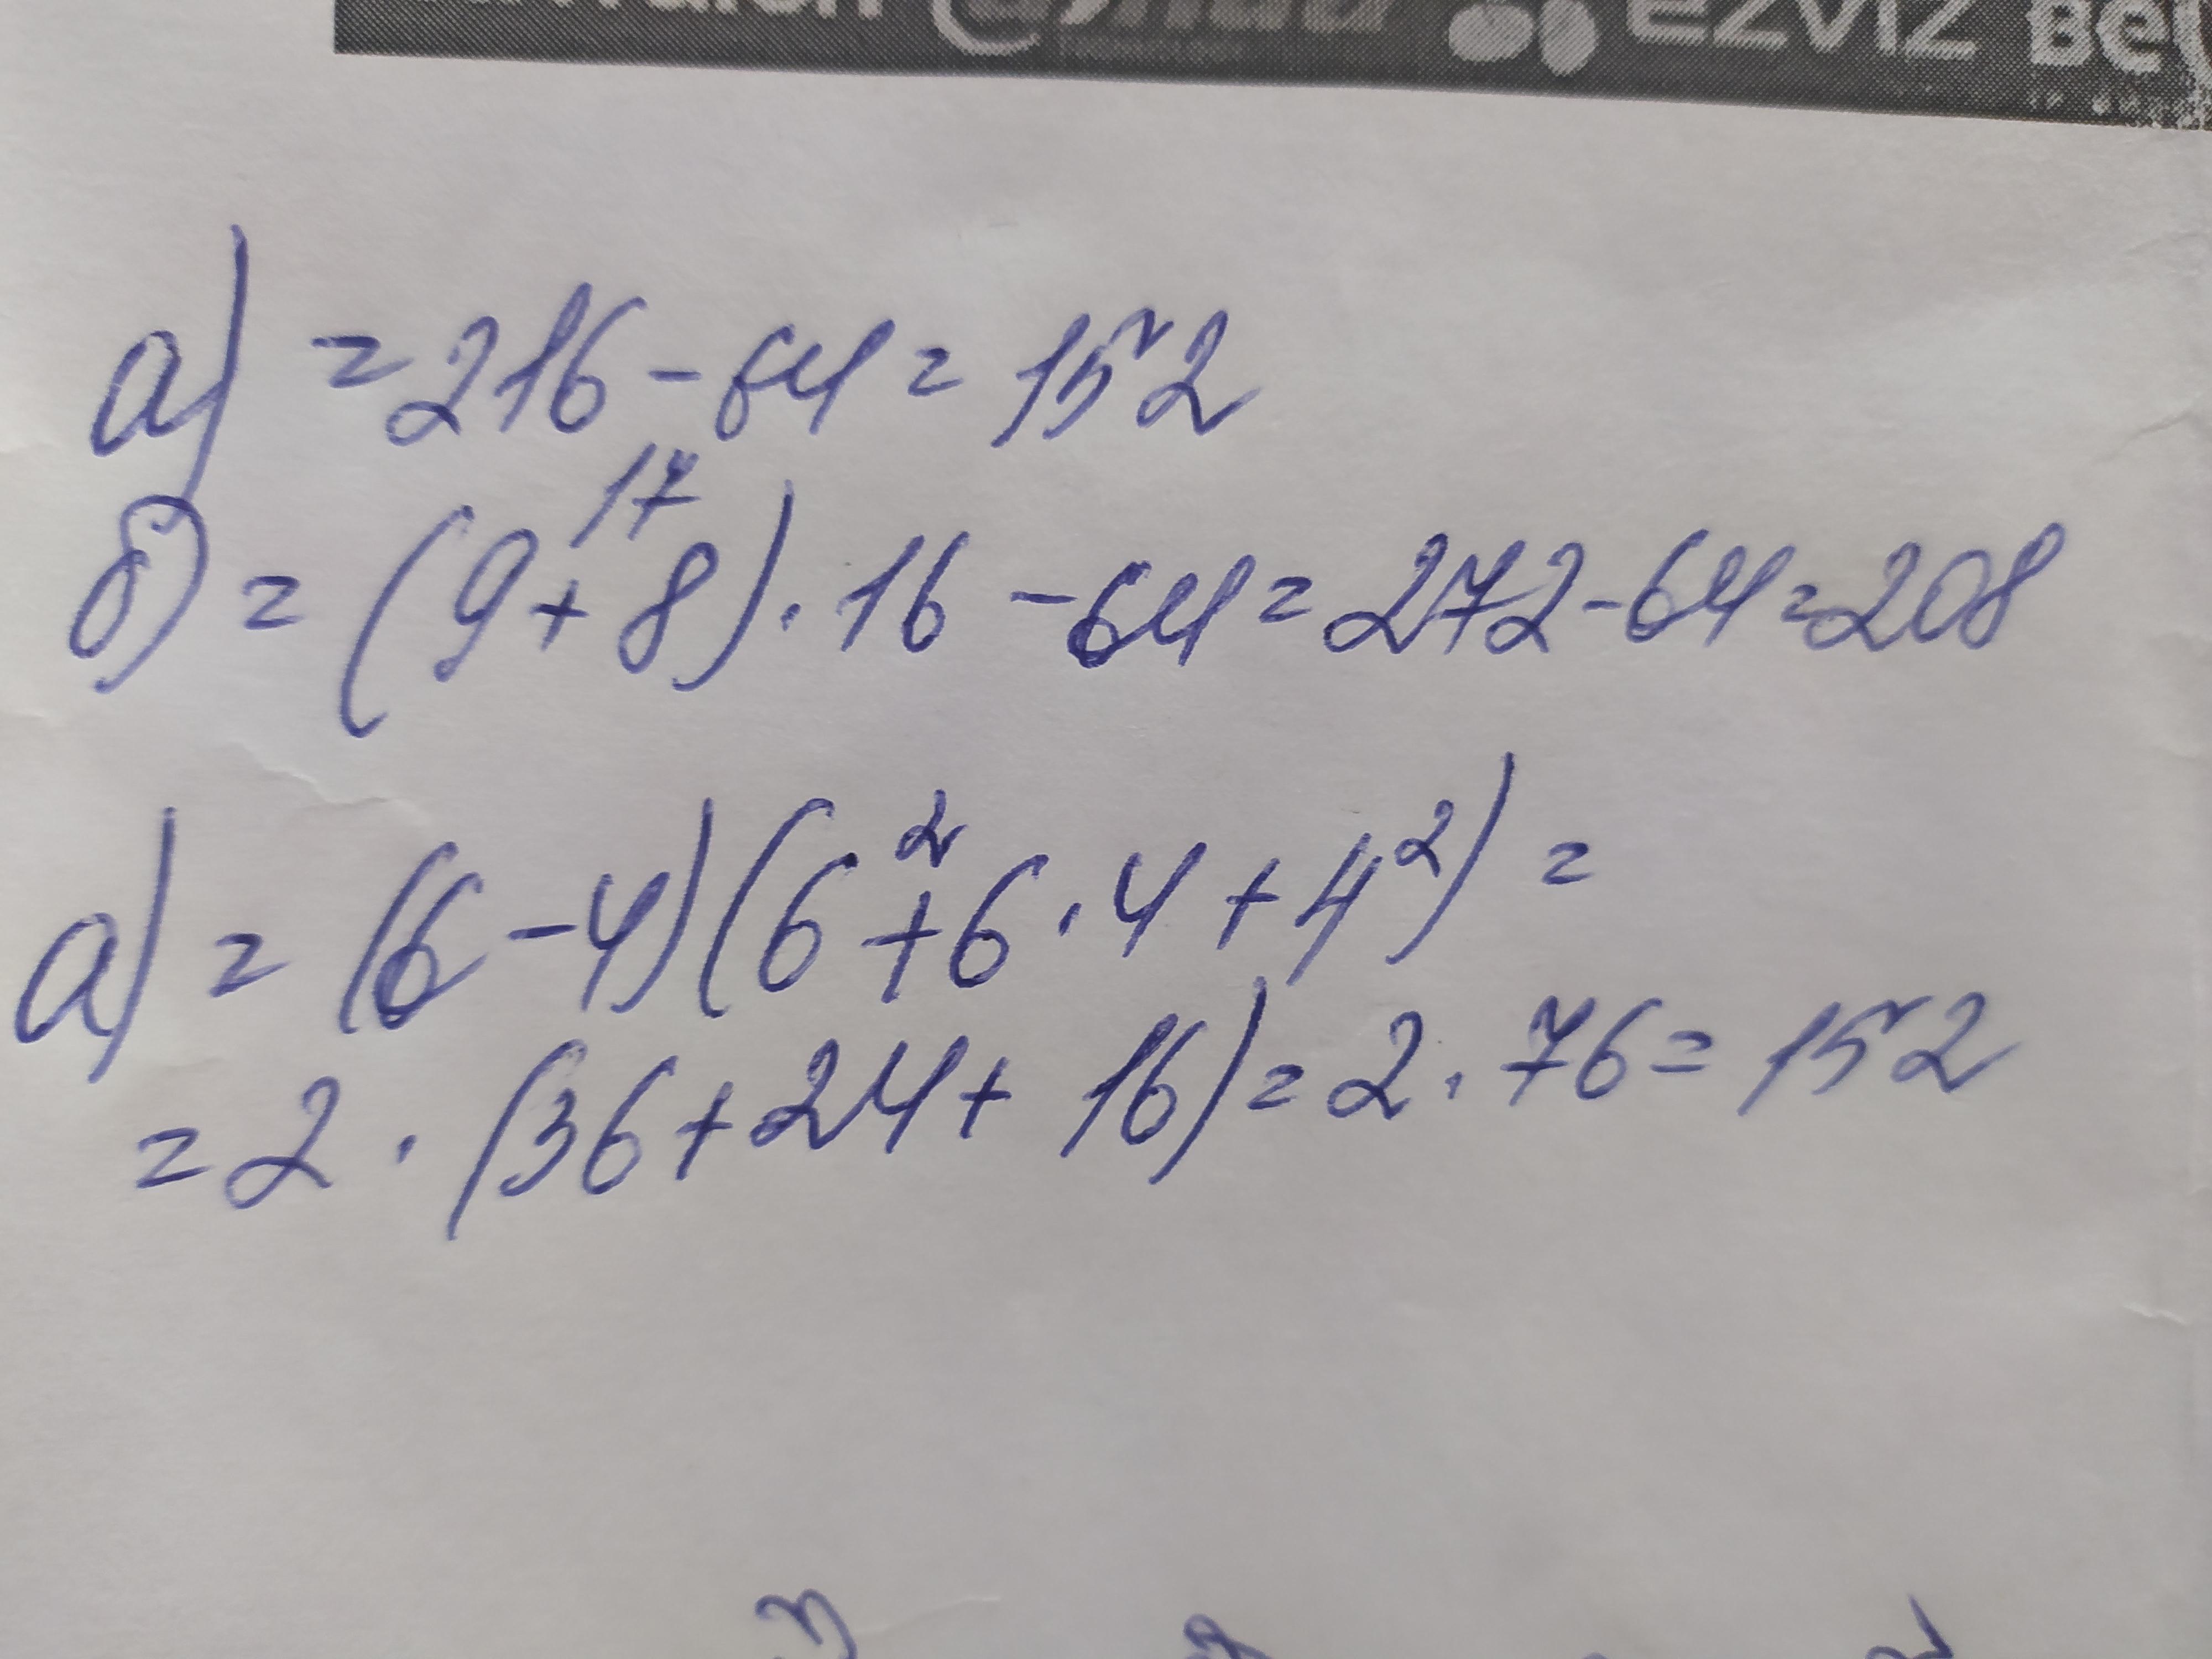 EZVIZ Bel
а) = 216 - 64 = 152
17
б) = (9 + 8) · 16 - 64 = 272 - 64 = 208
а) = (6 - 4)(6² + 6 · 4 + 4²) =
= 2 · (36 + 24 + 16) = 2 · 76 = 152